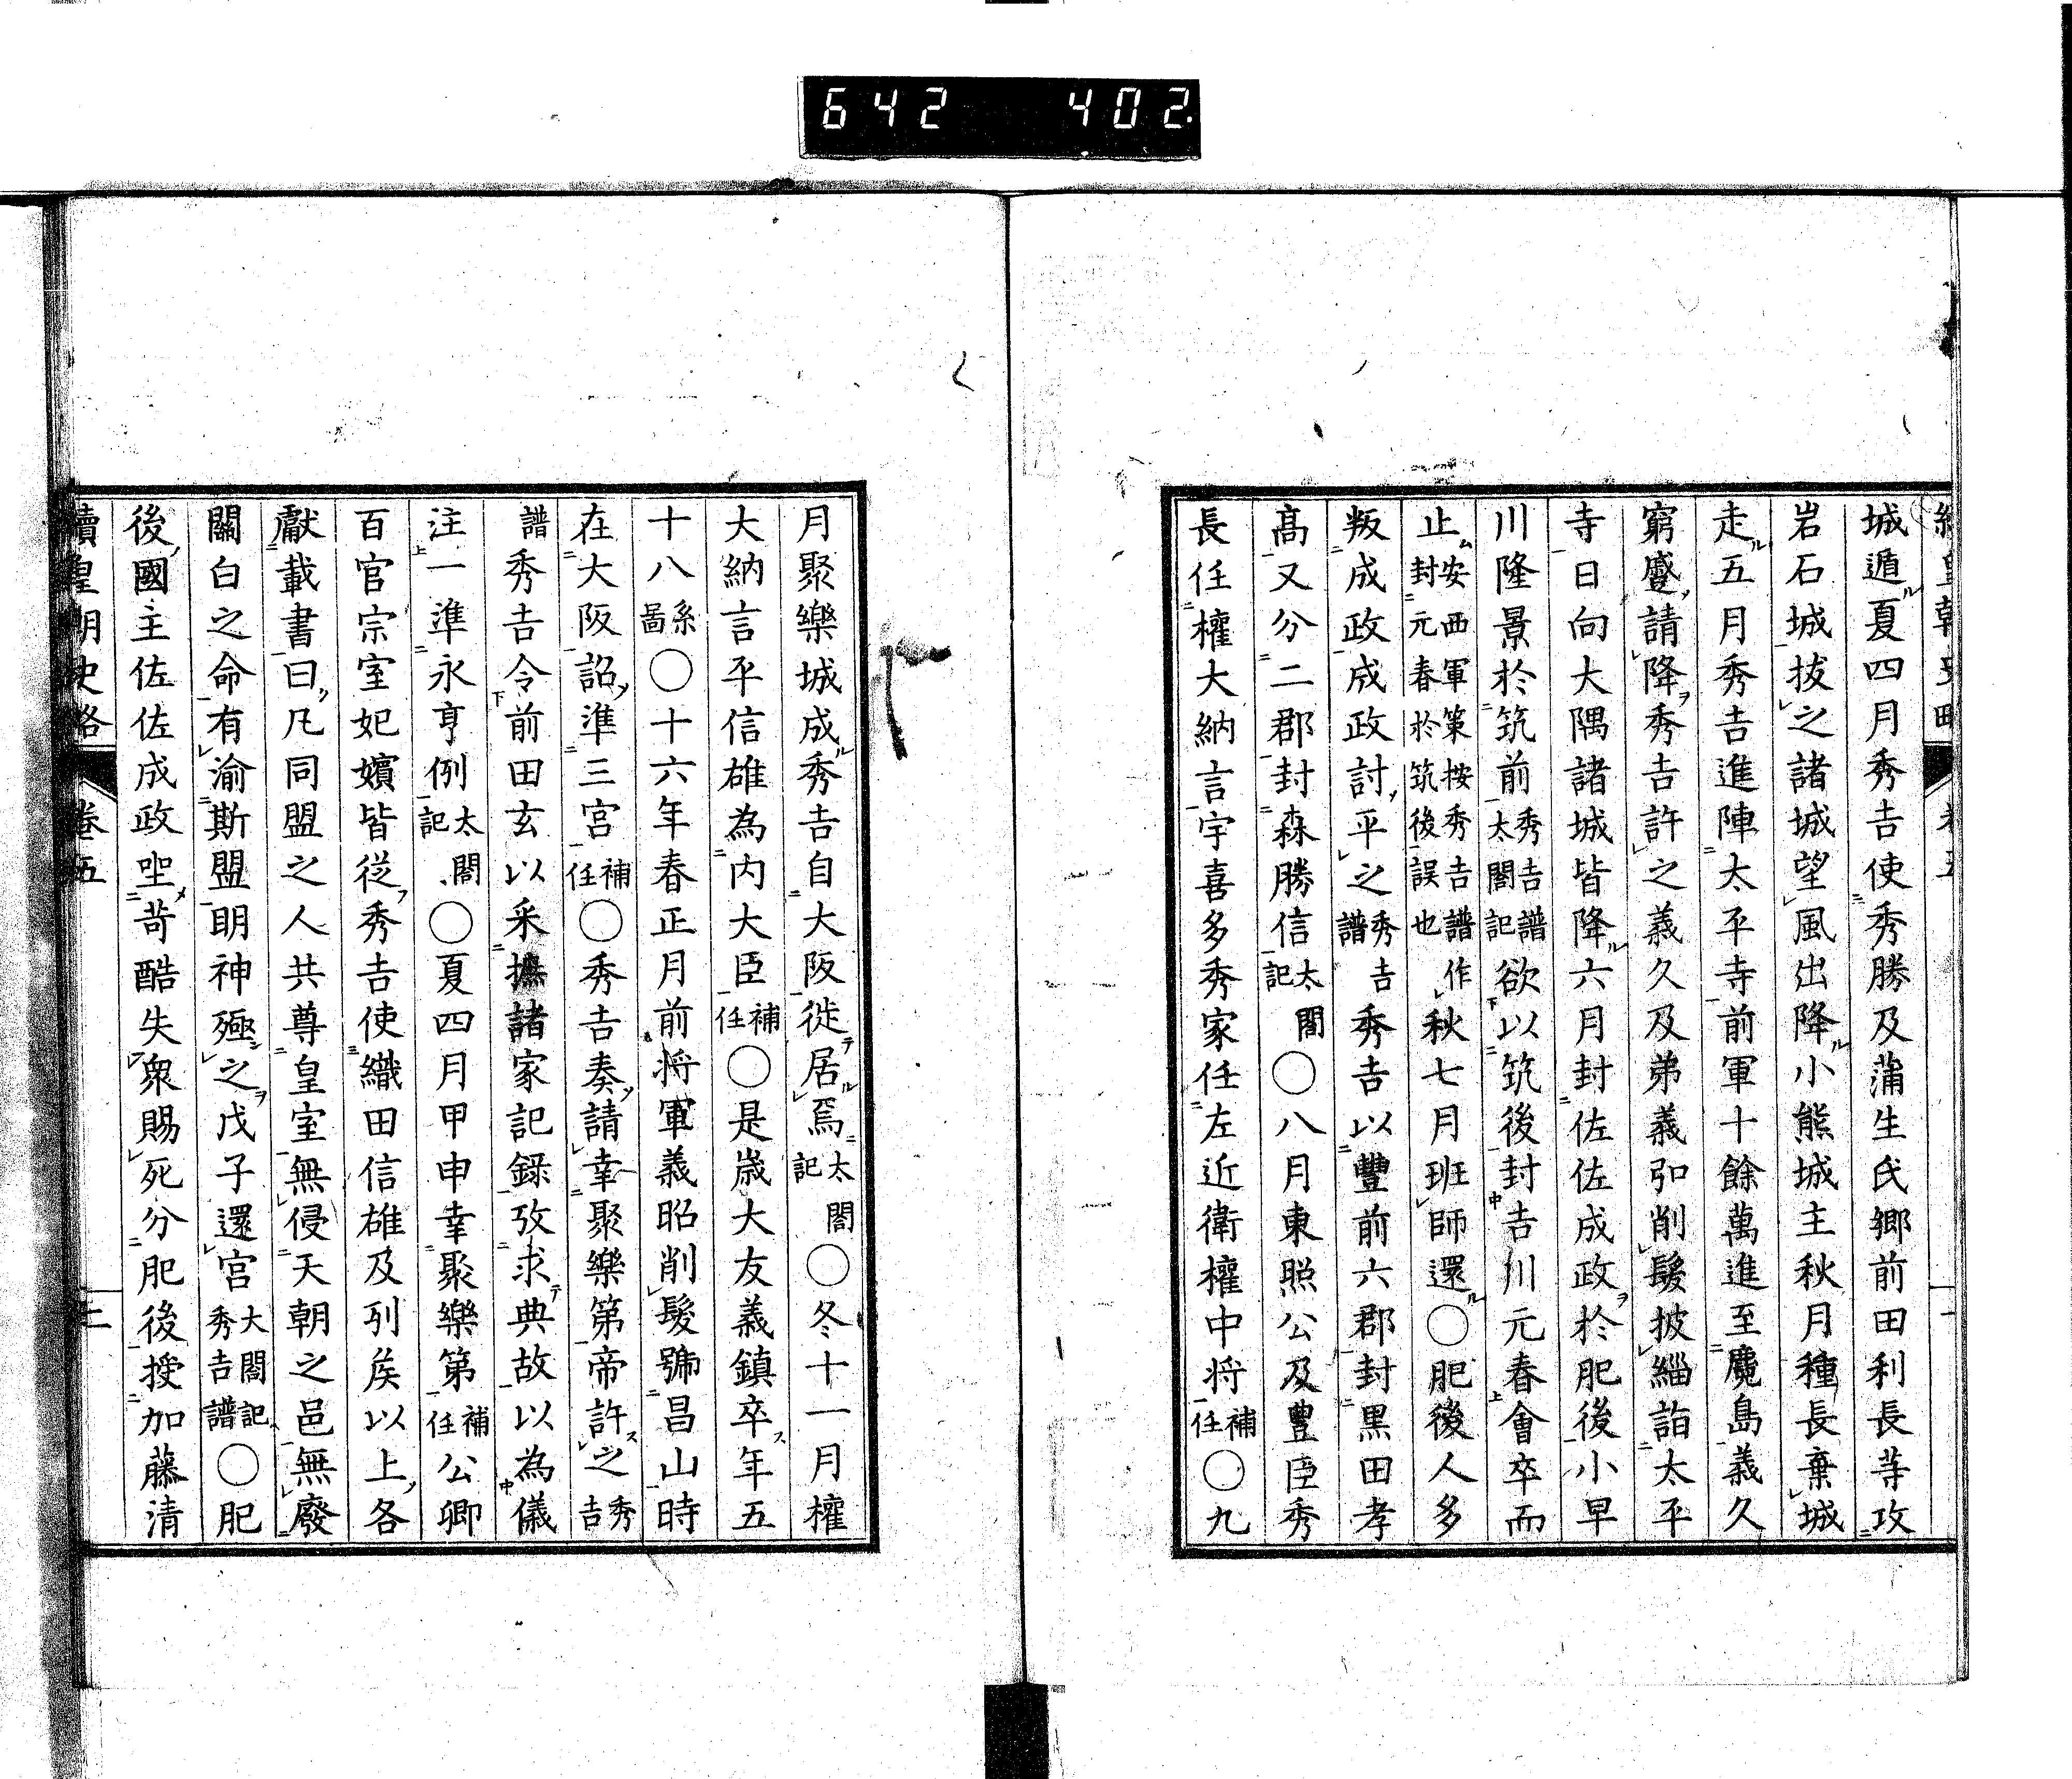 642 402.
城遁夏四月秀吉使秀勝及蒲生氏郷前田利長等攻
岩石城拔之諸城望風出降小熊城主秋月種長棄城
走五月秀吉進陣太平寺前軍十餘萬進至麑島義久
窮蹙請降秀吉許之義久及弟義弘削髮披緇詣太平
寺日向大隅諸城皆降六月封佐佐成政於肥後小早
川隆景於筑前秀吉譜太閤記欲以筑後封吉川元春會卒而
止安西軍策按秀吉譜作封元春於筑後誤也秋七月班師還〇肥後人多
叛成政成政討平之秀吉譜秀吉以豐前六郡封黑田孝
高又分二郡封森勝信太閤記〇八月東照公及豐臣秀
長任權大納言宇喜多秀家任左近衛權中将補任〇九
月聚樂城成秀吉自大阪徙居焉太閤記〇冬十一月權
大納言平信雄為内大臣補任〇是歳大友義鎮卒年五
十八系圖〇十六年春正月前将軍義昭削髮號昌山時
在大阪詔準三宮補任〇秀吉奏請幸聚樂第帝許之秀吉
譜秀吉令前田玄以采摭諸家記錄攷求典故以為儀
注一準永亨例太閤記〇夏四月甲申幸聚樂第補任公卿
百官宗室妃嬪皆從秀吉使織田信雄及列矦以上各
獻載書曰凡同盟之人共尊皇室無侵天朝之邑無廢
關白之命有渝斯盟明神殛之戊子還宮太閤記秀吉譜〇肥
後國主佐佐成政坐苛酷失衆賜死分肥後授加藤清
續皇朝史略 卷五